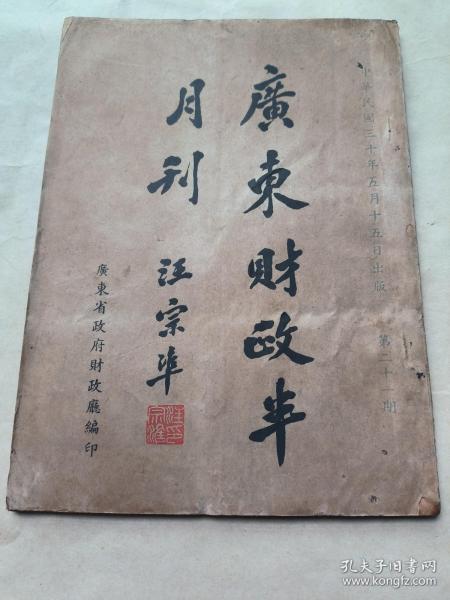 中華民國三十年五月十五日出版 第二十一期
廣東財政半
月刊 汪宗準
汪宗準印
廣東省政府財政廳編印
孔夫子旧书网
www.kongfz.com